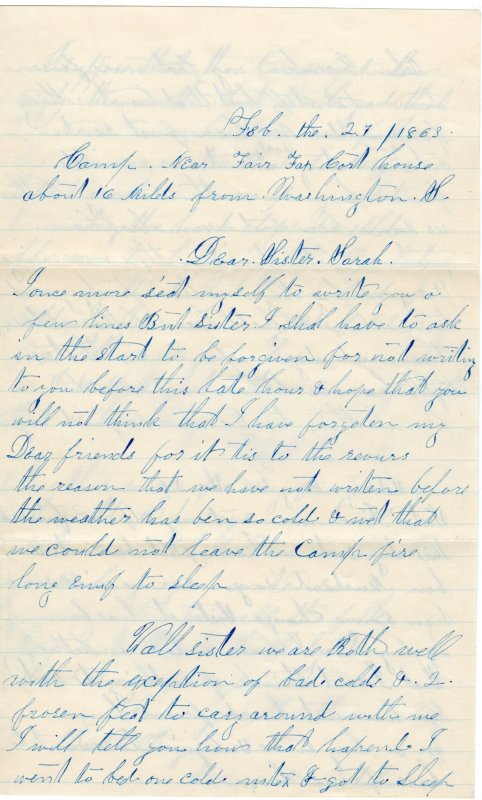 Feb. the. 27/1863.
Camp. Near Fair Fax Cort house
about 16 Milds from. Washington. S.
Dear. Sister. Sarah.
I once more seat myself to write you a
few lines But sister I shal have to ask
in the start to be forgiven for not writing
to you before this late hour & hope that you
will not think that I have forgoten my
Dear friends for it tis to the revurs
the reason that we have not writen before
the weather has ben so cold & wet that
we could not leave the Camp fire
long enuf to sleep
Wall sister we are Both well
with the exception of bad colds &. 2.
frosen feat to cary around with me
I will tell you how that hapend. I
went to bed one cold nite & got to sleep